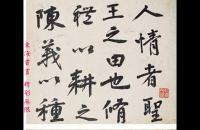 人情者聖
王之田也脩
禮以耕之
陳義以種